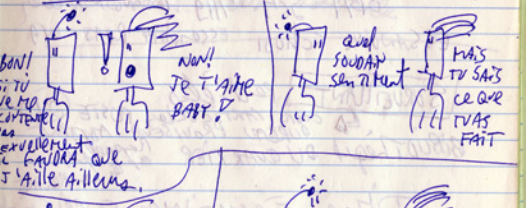 BON!
Si TU
NE ME
CONTENTE
PAS
SEXUELLEMENT
iL FAUDRA QUE
J'AiLLE AiLLEURS.
!
NON!
JE T'AiME
BABY!
QUEL
SOUDAIN
SENTIMENT
MAiS
TU SAiS
CE QUE
TU AS
FAiT